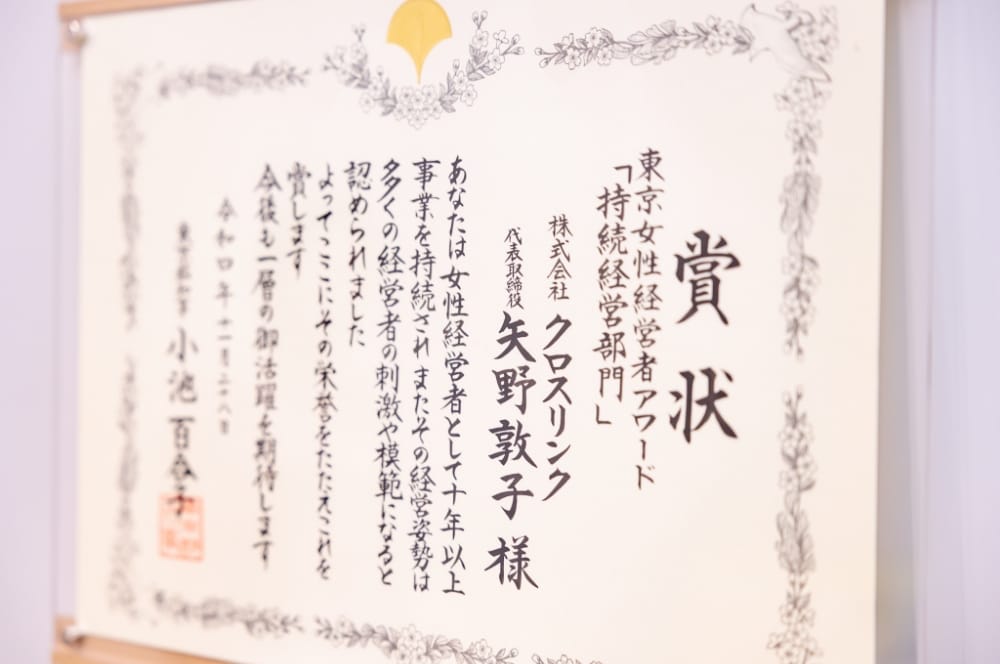 賞状
東京女性経営者アワード
「持続経営部門」
株式会社 クロスリンク
代表取締役 矢野敦子様
あなたは女性経営者として十年以上
事業を持続されまたその経営姿勢は
多くの経営者の刺激や模範になると
認められました
よってここにその栄誉をたたえこれを
賞します
今後も一層の御活躍を期待します
令和四年十一月二十八日
東京都知事 小池百合子